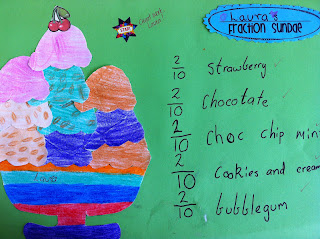 Laura's
Fraction Sundae
STAR!
2/10 Strawberry
2/10 Chocolate
2/10 Choc chip min
2/10 Cookies and cream
2/10 bubblegum
Laura